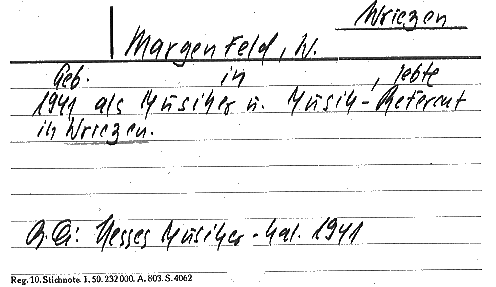 Wriezen
Margenfeld, W.
Geb. in , lebte
1941 als Musiker u. Musik-Referent
in Wriezen.
Hesses Musiker-Kal. 1941
Reg. 10. Stichnote. 1. 50. 232000. A. 803. S. 4062